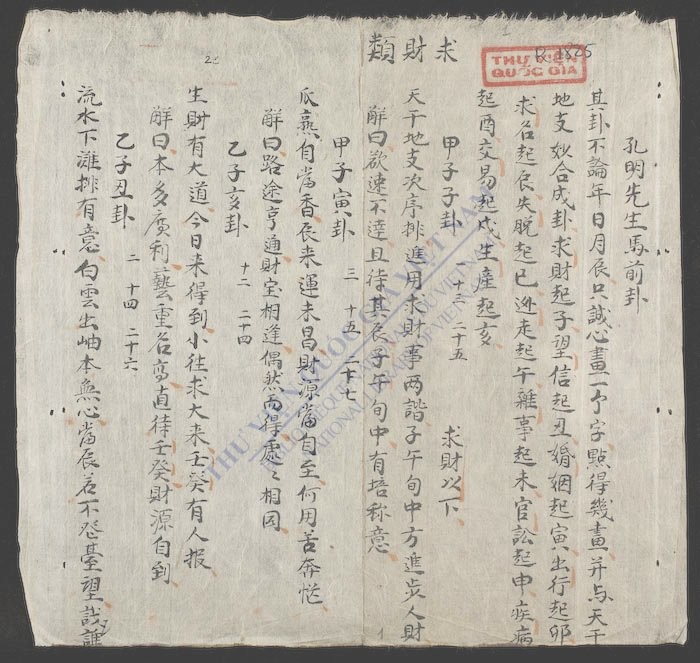 求財類
R.1825
THƯ VIỆN
QUỐC GIA
孔明先生馬前卦
其卦不論年日月辰只誠心畫一个字點得幾畫并与天干
地支妙合成卦求財起子望信起丑婚姻起寅出行起卯
求名起辰失脫起巳逃走起午雜事起未官訟起申疾病
起酉交易起戌生產起亥
甲子子卦 一 十三 二十五 求財以下
天干地支次序排進用求財事两諧子午旬中方進步人財
解曰欲速不達且待其辰子午旬中有培称意
甲子寅卦 三 十五 二十七
瓜熟自當香辰来運未昌財源當自至何用苦奔忙
解曰路途亨通財宝相逢偶然而得處々相同
乙子亥卦 十二 二十四
生財有大道今日来得到小往求大来壬癸有人报
解曰本多廣利藝重名高直待壬癸財源自到
乙子丑卦 二 十四 二十六
流水下灘排有意白雲出岫本無心當辰若不登臺望誰
THƯ VIỆN QUỐC GIA VIỆT NAM
NATIONAL LIBRARY OF VIETNAM